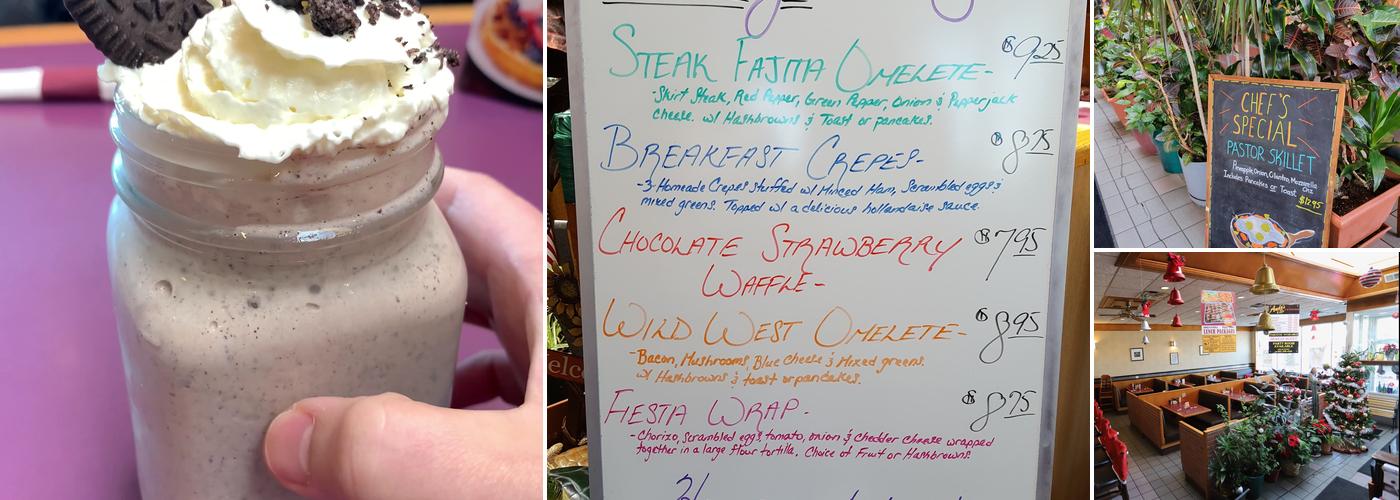 STEAK FAJITA OMELETE- $9.25
-Skirt Steak, Red Pepper, Green Pepper, Onion & Pepperjack
cheese. w/ Hashbrowns & Toast or pancakes.
BREAKFAST CREPES- $8.75
-3 Homeade Crepes stuffed w/ Minced Ham, Scrambled eggs &
mixed greens. Topped w/ a delicious hollandaise sauce.
CHOCOLATE STRAWBERRY $7.95
WAFFLE-
WILD WEST OMELETE- $8.95
-Bacon, Mushrooms, Blue Cheese & Mixed greens.
w/ Hashbrowns & toast or pancakes.
FIESTA WRAP- $8.75
-Chorizo, Scrambled eggs, tomato, onion & Chedder cheese wrapped
together in a large flour tortilla. Choice of Fruit or Hashbrowns.
elco
CHEF'S
SPECIAL
PASTOR SKILLET
Pineapple, Onion, Cilantro, Mozzarella
Chz
Includes Pancakes or Toast
$12.95